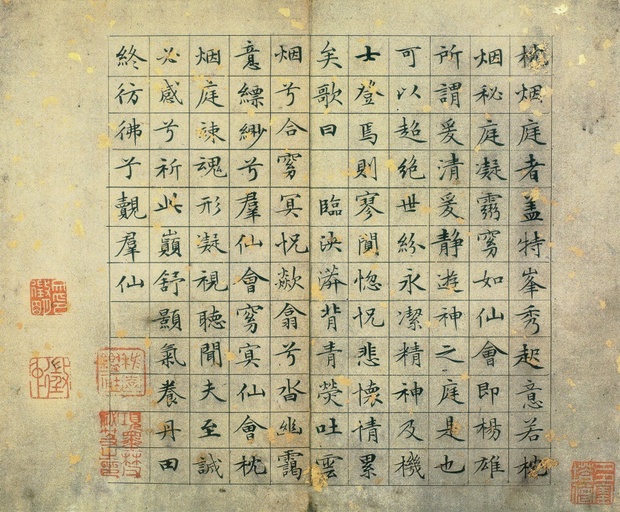 枕烟庭者盖特峯秀起意若枕
烟秘庭凝靄窅如仙會即楊雄
所謂爰清爰静遊神之庭是也
可以超絶世紛永潔精神及機
士登焉則寥闃惚怳悲懷情累
矣歌曰 臨泱漭背青熒吐雲
烟兮合窅冥怳欻翕兮沓幽靄
意縹緲兮羣仙會窅冥仙會枕
烟庭竦魂形凝視聽聞夫至誠
必感兮祈此巔舒顥氣養丹田
終彷彿兮覿羣仙